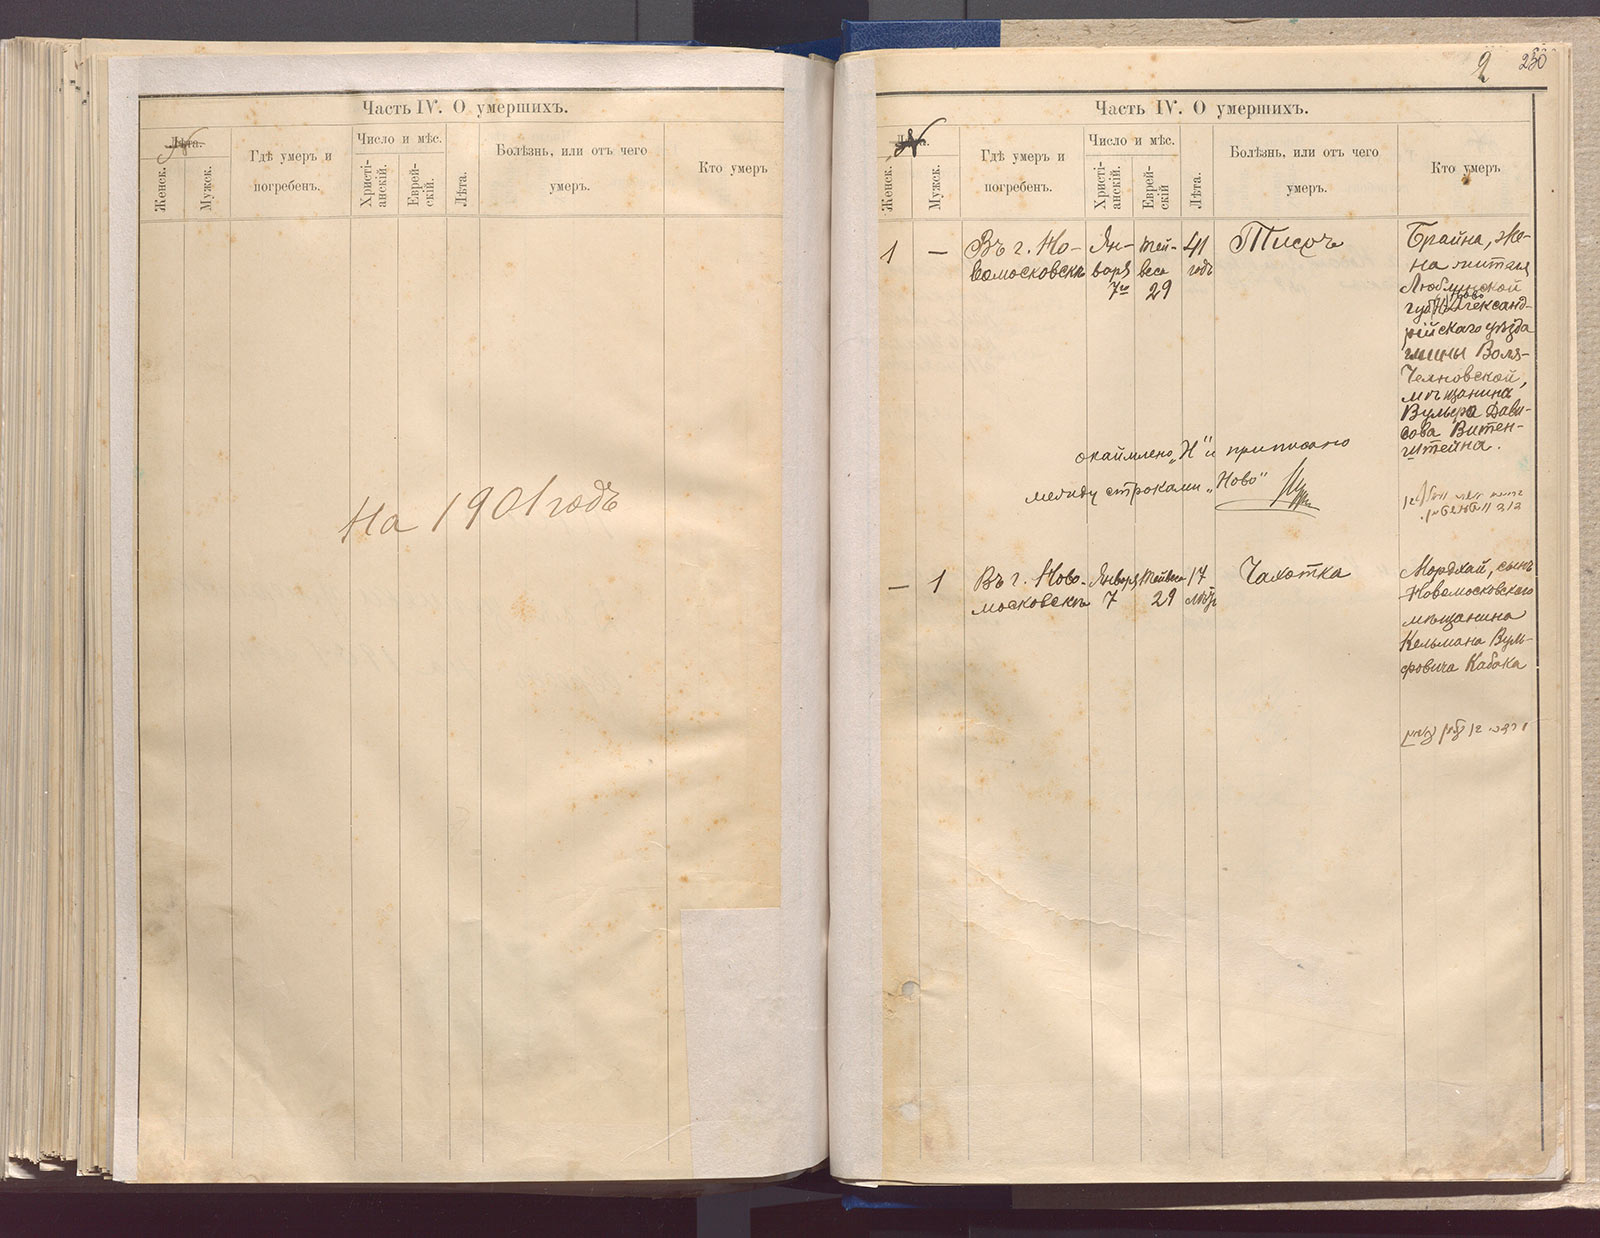 Часть IV. О умершихъ.
Лѣта.
№
Женск.
Мужск.
Гдѣ умеръ и
погребенъ.
Число и мѣс.
Христі-
анскій.
Еврей-
скій.
Лѣта.
Болѣзнь, или отъ чего
умеръ.
Кто умеръ
На 1901 годъ
2 230
Часть IV. О умершихъ.
Лѣта.
№
Женск.
Мужск.
Гдѣ умеръ и
погребенъ.
Число и мѣс.
Христі-
анскій.
Еврей-
скій
Лѣта.
Болѣзнь, или отъ чего
умеръ.
Кто умеръ
1
—
Въ г. Но-
вомосковскѣ
Ян-
варя
7го
Тей-
веса
29
41
годъ
Брайна, же-
на жителя
Люблинской
губ. Ново
Александ-
рійскаго уѣзда
гмины Воля-
Челновской,
мѣщанина
Вульфа Дави-
дова Витен-
штейна.
окаймлено „Н“ и приписано
между строками „Ново“
—
1
Въ г. Ново-
московскѣ
Января
7
Тейвеса
29
17
лѣтъ
Чахотка
Мордхай, сынъ
Новомосковскаго
мѣщанина
Кельмана Вуль-
фовича Кабака